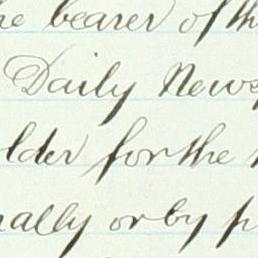 he bearer of th
Daily News
lder for the
nally or by p